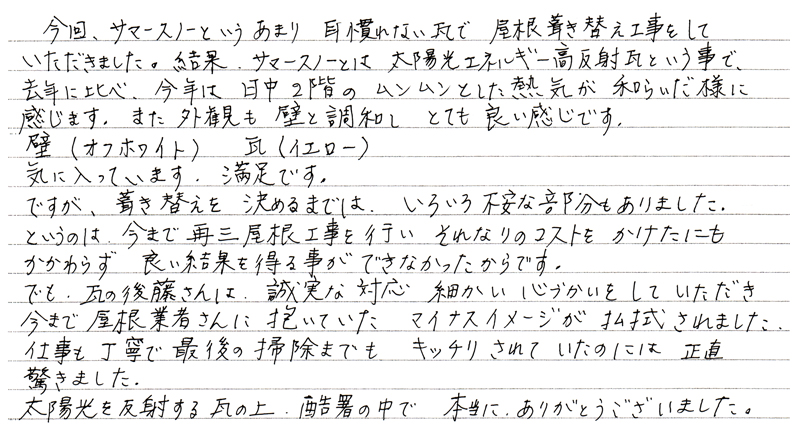 今回、サマースノーという あまり 耳慣れない瓦で 屋根葺き替え工事をして
いただきました。結果、サマースノーとは 太陽光エネルギー高反射瓦という事で、
去年に比べ、今年は 日中2階の ムンムンとした熱気が 和らいだ様に
感じます。また 外観も 壁と調和し とても 良い感じです。
壁 (オフホワイト) 瓦(イエロー)
気に入っています。満足です。
ですが、葺き替えを 決めるまでは、いろいろ不安な部分もありました。
というのは、今まで 再三屋根工事を行い それなりのコストを かけたにも
かかわらず 良い結果を得る事が できなかったからです。
でも、瓦の後藤さんは、誠実な対応 細かい 心づかいを して いただき
今まで 屋根業者さんに 抱いていた マイナスイメージが 払拭されました。
仕事も 丁寧で 最後の掃除までも キッチリ されて いたのには 正直
驚きました。
太陽光を反射する 瓦の上、酷署の中で 本当に、ありがとうございました。